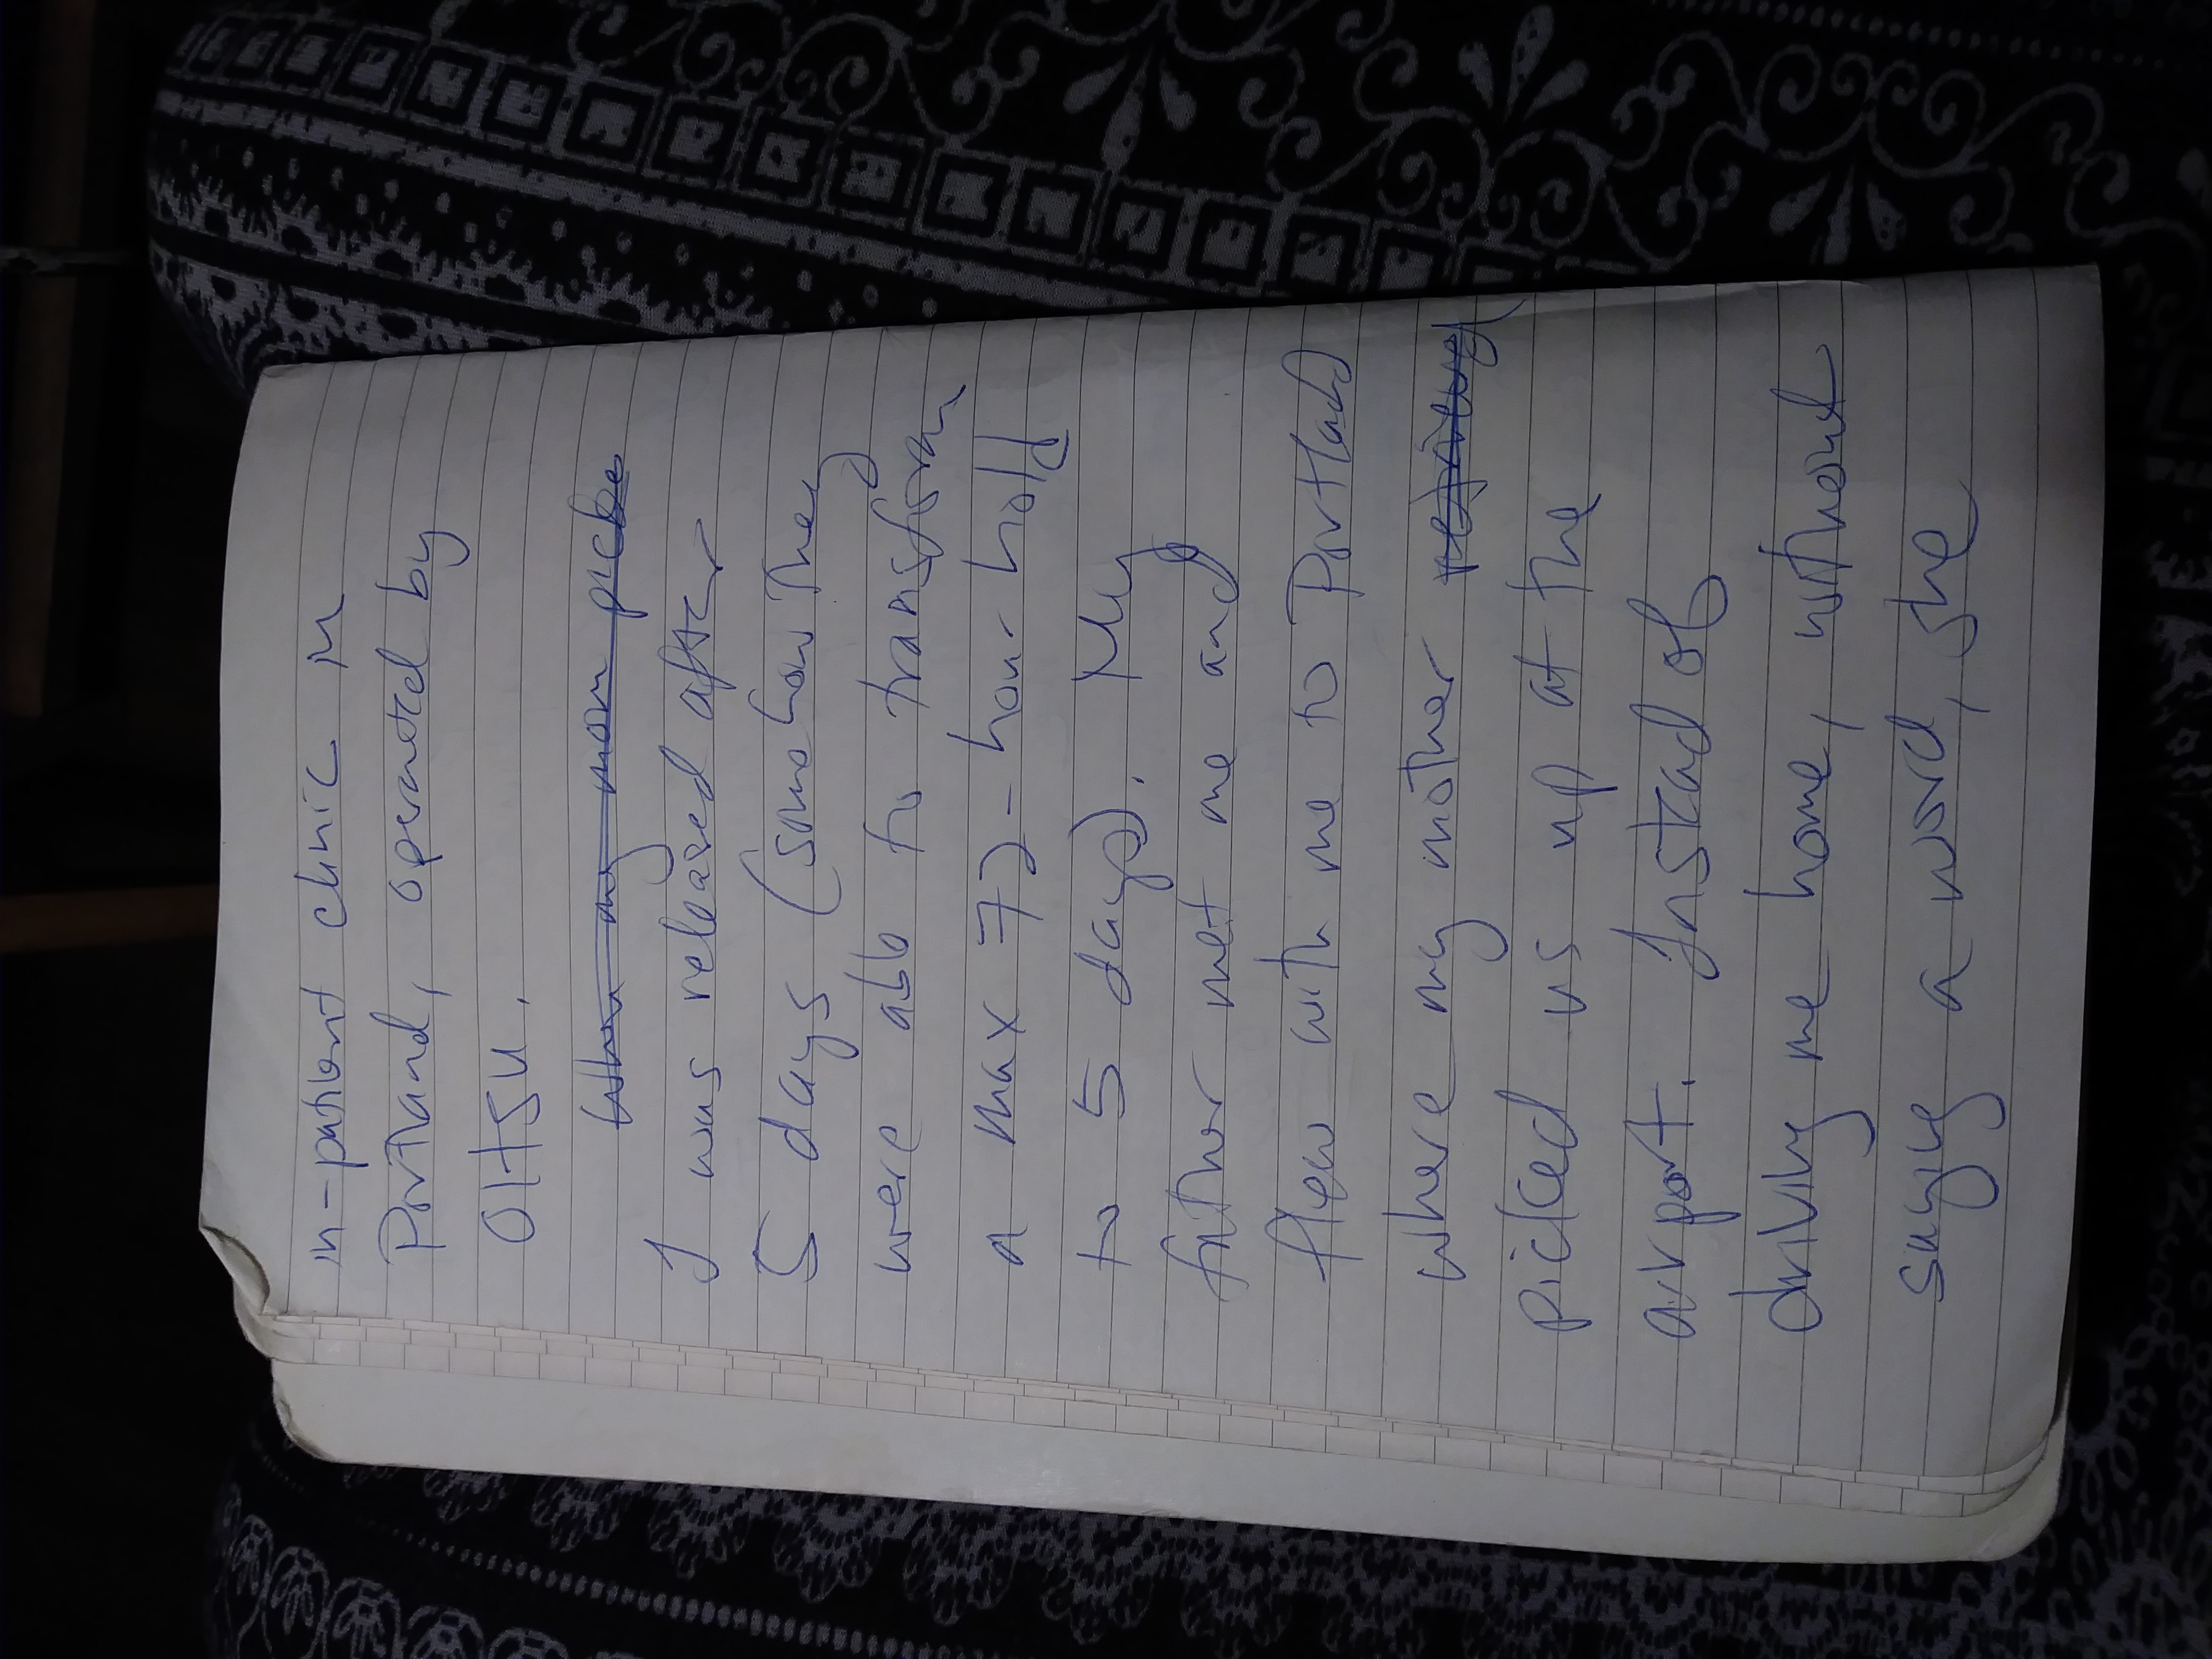 in-patient clinic in
Portland, operated by
OHSU.
When my mom picke
I was released after
5 days (somehow they
were able to transform
a max 72-hour hold
to 5 days). My
father met me and
flew with me to Portland
where my mother
picked us up at the
airport. Instead of
driving me home, without
saying a word, she